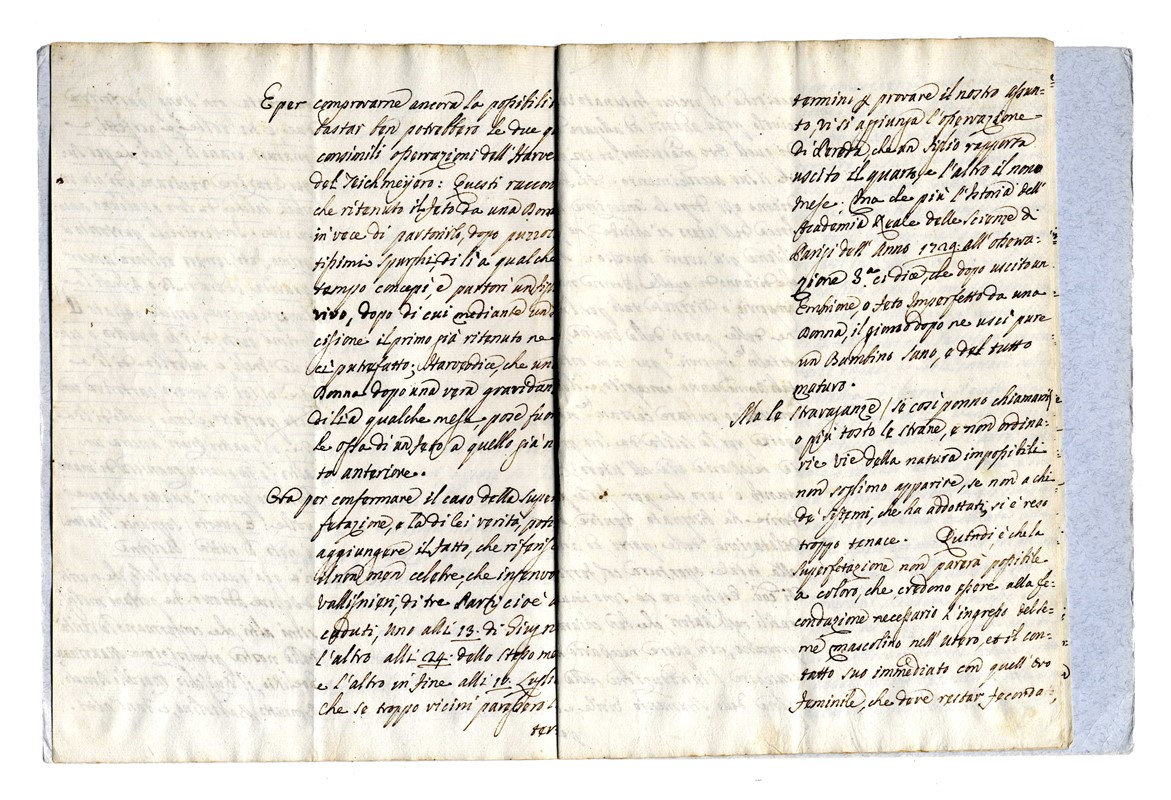 E per comprovarne ancora la possibili
bastar ben potrebbero le due q
consimili operazioni dell'Harve
del Teichmeyero: Questi raccon
che ritenuto il feto da una Donn
in vece di partorirlo, dopo puzzol
tissimi spurghi, di lì a qualche
tempo concepì, e partorì un figl
vivo, dopo di cui mediante un
cisione il primo già ritenuto ne
ci putrefatto; Harveo dice, che un
Donna dopo una vera gravidan
di lì a qualche mese, pose fuor
le ossa di un feto a quello già n
to anteriore.
Ora per confermare il caso della super
fetazione, e la di lei verità, potr
aggiungere il fatto, che riferisc
il non men celebre che ingenuo
Vallisnieri, di tre Parti cioè a
caduti, uno alli 13. di Giugn
l'altro alli 24. dello stesso me
e l'altro in fine alli Lugli
che se troppo vicini parebbero i
ter=
termini p provare il nostro assun=
to, vi si agiunga l'operazione
di che un figlio rapporta
uscito il quarto, e l'altro il nono
mese. Ma che più l'Istoria dell'
Academia Reale delle Scienze di
Parigi dell'Anno 1729: all'osserva=
zione 3.a ci dice, che dopo uscito un
Embrione o feto imperfetto da una
Donna, il giorno dopo ne uscì pure
un Bambino sano, e del tutto
maturo.
Ma le stravaganze / se così ponno chiamarsi /
o più tosto le strane, e non ordina=
rie vie della natura impossibili
non sogliono apparire, se non a chi
de' sistemi, che ha addottati, si è reso
troppo tenace. Quindi è che la
superfetazione non parerà possibile
a coloro, che credono essere alla fe=
condazione necessario l'ingresso del se=
me mascolino nell'utero, et il con=
tatto suo immediato con quell'ovo
feminile, che deve restar fecondo,